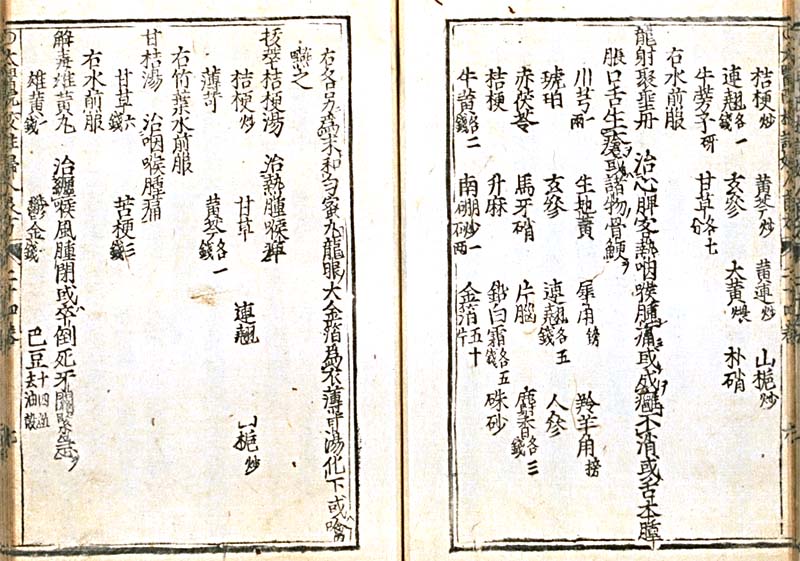 桔梗炒 黄芩炒 黄連炒 山栀炒
連翹各一錢 玄參 大黄煨 朴硝
牛蒡子研 甘草各七分
右水煎服
龍射聚聖丹 治心脾客熱咽喉腫痛或成癰不消或舌本腫
脹口舌生瘡或諸物骨鯁
川芎一兩 生地黄 犀角鎊 羚羊角鎊
琥珀 玄參 連翹各五錢 人參
赤茯苓 馬牙硝 片腦 麝香各三錢
桔梗 升麻 鉛白霜各五錢 硃砂
牛黄各二錢 南硼砂一兩 金箔五十片
右各另爲末和勻蜜丸龍眼大金箔爲衣薄荷湯化下或噙
嚥之
拔萃桔梗湯 治熱腫喉痺
桔梗炒 甘草 連翹 山栀炒
薄荷 黄芩各一錢
右竹葉水煎服
甘桔湯 治咽喉腫痛
甘草六錢 苦梗三錢
右水煎服
解毒雄黄丸 治纏喉風腫閉或卒倒死牙關緊急
雄黄一錢 鬱金錢 巴豆十四粒去油殼
太醫院校註婦人良方 二十四卷